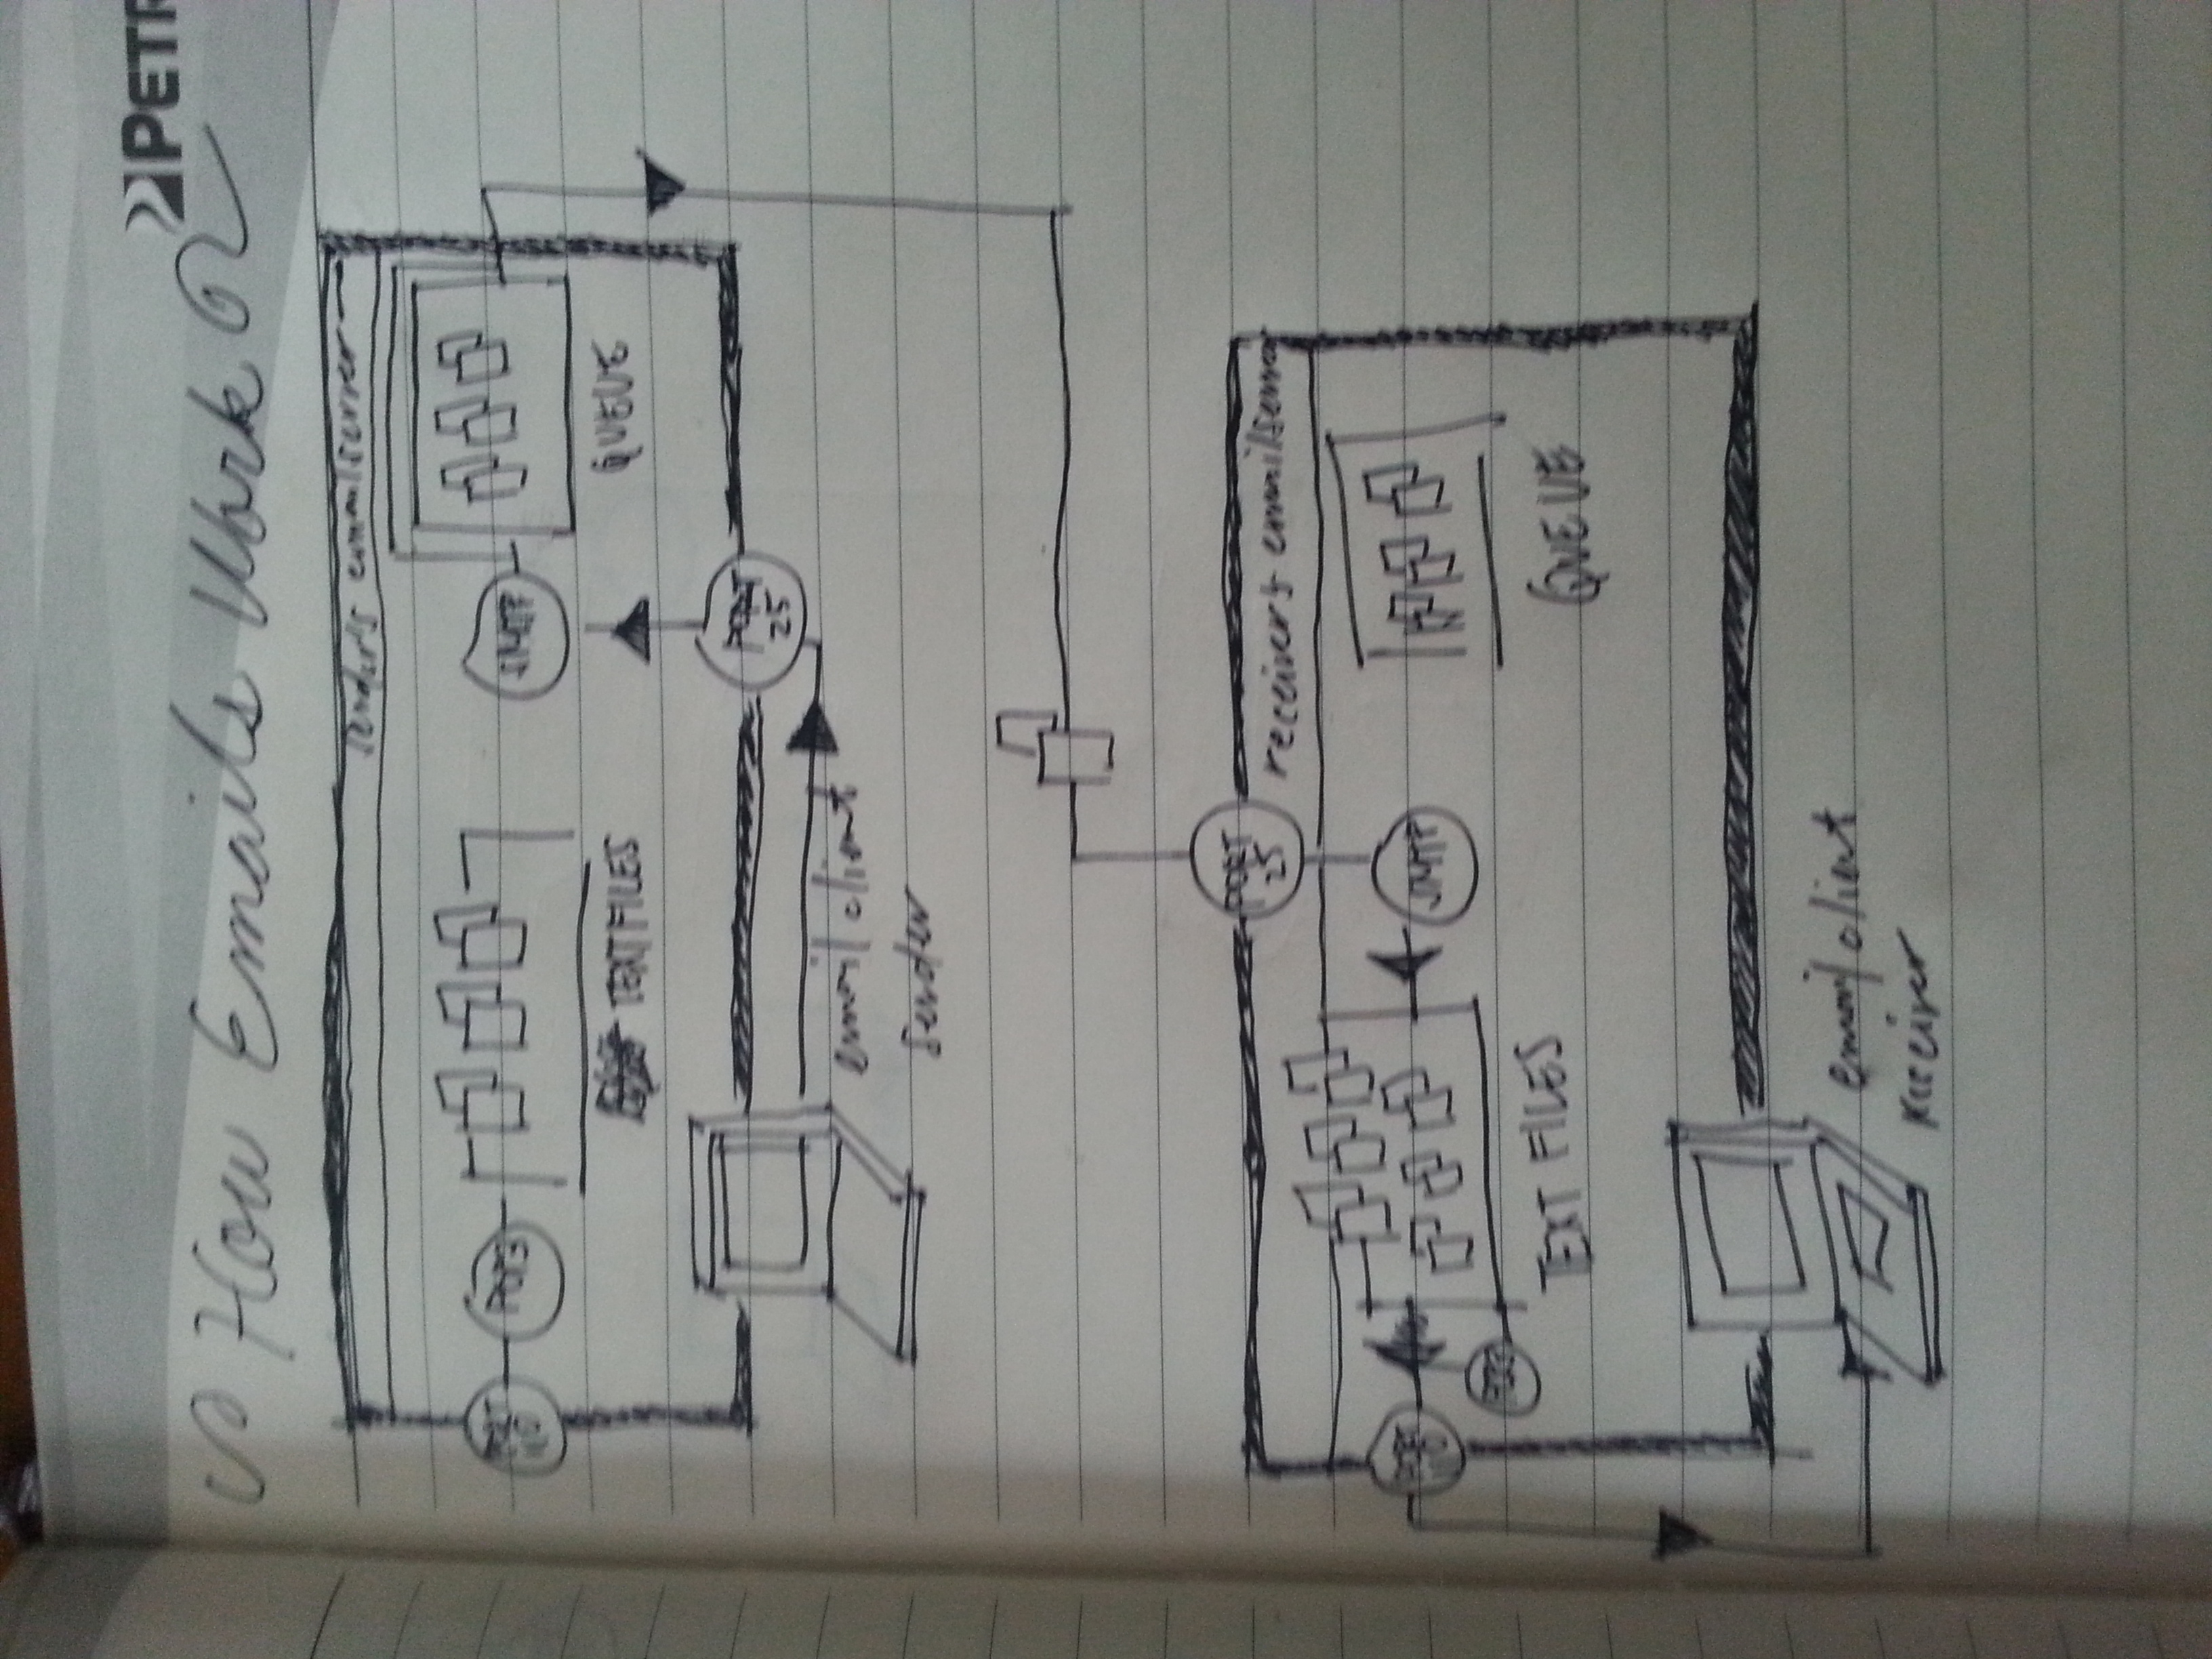 PETR
How Emails Work
sender's emailserver
PORT
110
POP3
SMTP
TEXT FILES
QUEUE
PORT
25
email client
sender
PORT
25
receiver's emailserver
PORT
110
SMTP
POP3
TEXT FILES
QUEUE
email client
receiver